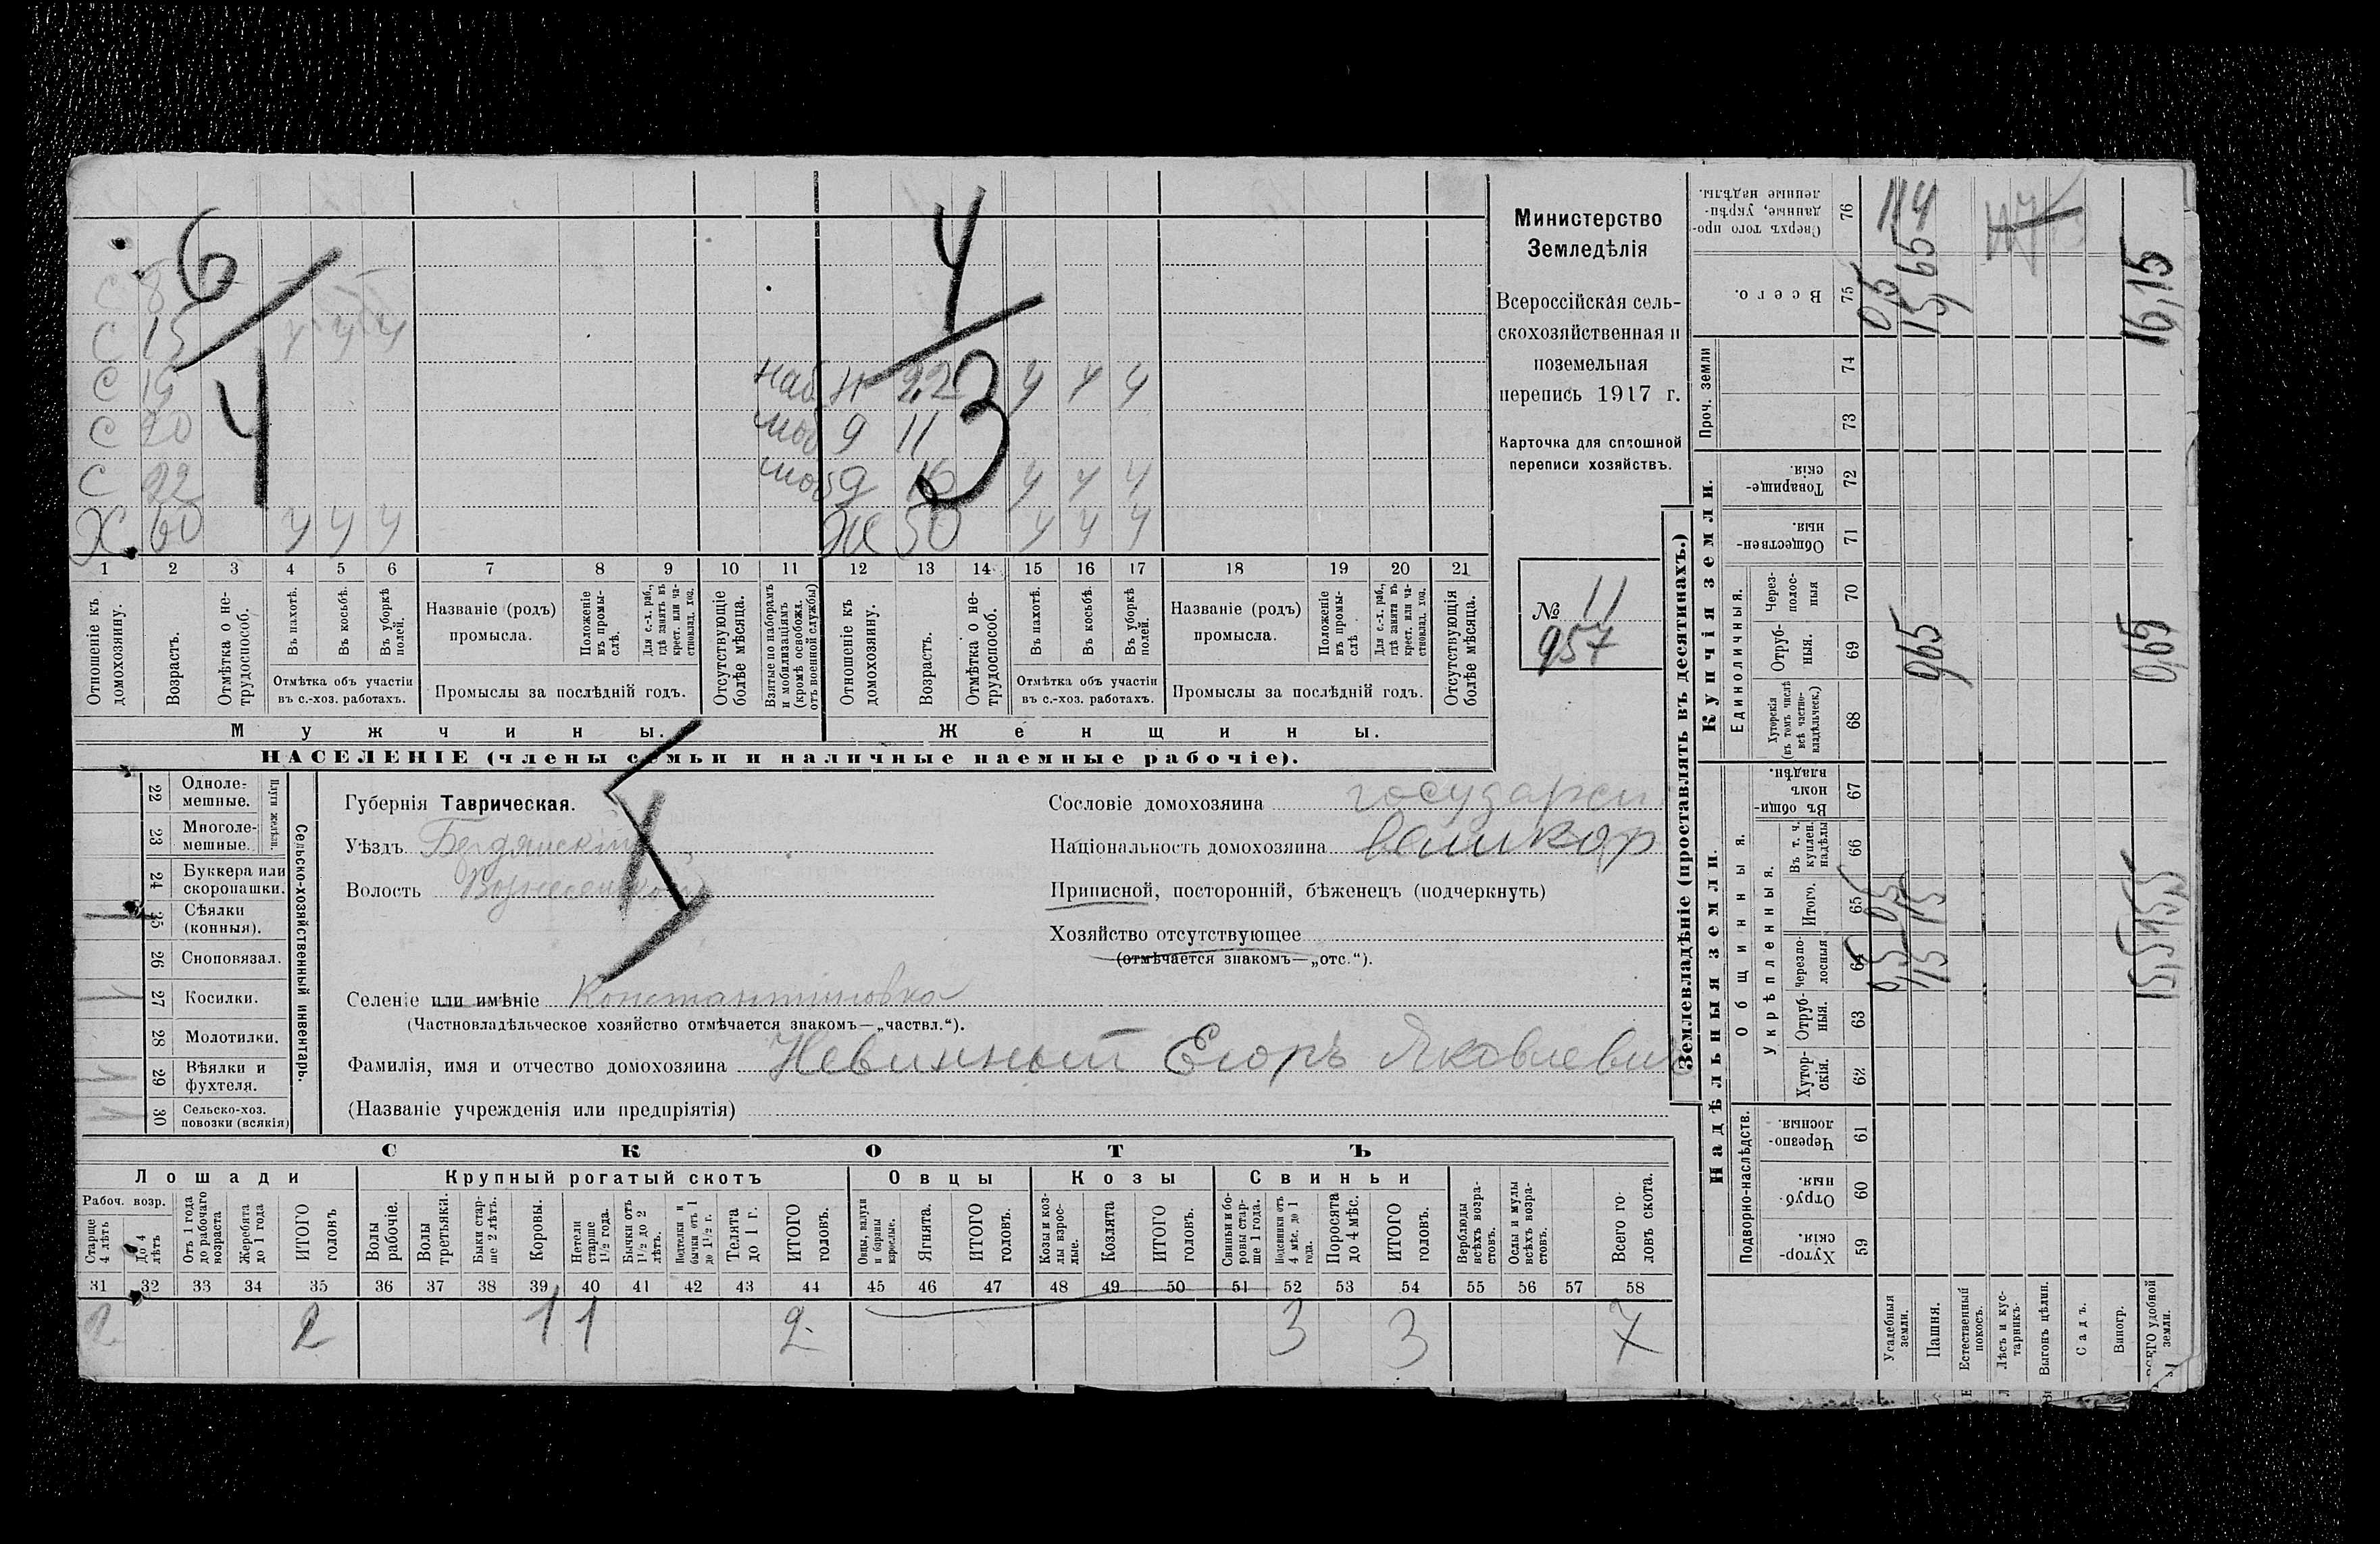 6
4
4
3
С 8
С 15 ч ч ч
С 19
С 20
С 22
Х 60 ч ч ч
наб Н 22 ч ч ч
моб д 11
моб д 16 ч ч ч
Ж 50 ч ч ч
1 2 3 4 5 6 7 8 9 10 11 12 13 14 15 16 17 18 19 20 21
Отношеніе къ домохозяину.
Возрастъ.
Отмѣтка о не-трудоспособ.
Въ пахотѣ.
Въ косьбѣ.
Въ уборкѣ полей.
Отмѣтка объ участіи
въ с.-хоз. работахъ.
Названіе (родъ)
промысла.
Положеніе въ промы-слѣ.
Для с.-х. раб., гдѣ занятъ въ крест. или ча-стновлад. хоз.
Промыслы за послѣдній годъ.
Отсутствующіе болѣе мѣсяца.
Взятые по наборамъ и мобилизаціямъ (кромѣ освобожд. отъ военной службы)
Отношеніе къ домохозяину.
Возрастъ.
Отмѣтка о не-трудоспособ.
Въ пахотѣ.
Въ косьбѣ.
Въ уборкѣ полей.
Отмѣтка объ участіи
въ с.-хоз. работахъ.
Названіе (родъ)
промысла.
Положеніе въ промы-слѣ
Для с.-х. раб., гдѣ занята въ крест. или ча-стновлад. хоз.
Промыслы за послѣдній годъ.
Отсутствующія болѣе мѣсяца.
Мужчины.
Женщины.
НАСЕЛЕНІЕ (члены семьи и наличные наемные рабочіе).
Министерство
Земледѣлія
Всероссійская сель-
скохозяйственная и
поземельная
перепись 1917 г.
Карточка для сплошной
переписи хозяйствъ.
№ 11
957
22 Одноле-мешные.
23 Многоле-мешные.
Плуги желѣзн.
24 Буккера или скоропашки.
25 Сѣялки (конныя).
26 Сноповязал.
27 Косилки.
28 Молотилки.
29 Вѣялки и фухтеля.
30 Сельско-хоз. повозки (всякія)
Сельско-хозяйственный инвентарь.
Губернія Таврическая.
Уѣздъ Бердянскій
Волость
Селеніе или имѣніе Константиновка
(Частновладѣльческое хозяйство отмѣчается знакомъ—„частвл.“).
Фамилія, имя и отчество домохозяина Невинный Егоръ Яковлевич
(Названіе учрежденія или предпріятія)
Сословіе домохозяина государсн
Національность домохозяина
Приписной, посторонній, бѣженецъ (подчеркнуть)
Хозяйство отсутствующее
(отмѣчается знакомъ—„отс.“).
СКОТЪ
Лошади
Крупный рогатый скотъ
Овцы
Козы
Свиньи
Рабоч. возр.
Старше 4 лѣтъ
До 4 лѣтъ
Отъ 1 года до рабочаго возраста
Жеребята до 1 года
ИТОГО головъ
Волы рабочіе.
Волы третьяки.
Быки стар-ше 2 лѣтъ.
Коровы.
Нетели старше 1½ года.
Бычки отъ 1½ до 2 лѣтъ.
Подтелки и бычки отъ 1 до 1½ г.
Телята до 1 г.
ИТОГО головъ.
Овцы, валухи и бараны взрослые.
Ягнята.
ИТОГО головъ.
Козы и коз-лы взрос-лые.
Козлята
ИТОГО головъ.
Свиньи и бо-ровы стар-ше 1 года.
Подсвинки отъ 4 мѣс. до 1 года.
Поросята до 4 мѣс.
ИТОГО головъ.
Верблюды всѣхъ возра-стовъ.
Ослы и мулы всѣхъ возра-стовъ.
Всего го-ловъ скота.
31 32 33 34 35 36 37 38 39 40 41 42 43 44 45 46 47 48 49 50 51 52 53 54 55 56 57 58
2 2 1 1 2 3 3 7
Землевладѣніе (проставлять въ десятинахъ.)
Надѣльныя земли.
Купчія земли.
Проч. земли
Подворно-наслѣдств.
Общинныя.
Укрѣпленныя.
Единоличныя.
Хутор-скія. 59
Отруб-ныя. 60
Черезпо-лосныя. 61
Хутор-скія. 62
Отруб-ныя. 63
Черезпо-лосныя 64
Итого. 65
Въ т. ч. куплен. надѣлы 66
Въ общи-номъ владѣн. 67
Хуторскія (въ томъ числѣ всѣ частно-владѣльческ.) 68
Отруб-ныя. 69
Через-полос-ныя 70
Обществен-ныя. 71
Товарище-скія. 72
73
74
Всего. 75
Сверхъ того про-данные, укрѣп-ленные надѣлы. 76
Усадебныя земли. 0,5 0,5 0,5
Пашня. 15 15 0,65 15,65
114
Естественный покосъ.
Лѣсъ и кус-тарникъ.
Выгонъ цѣлин.
Садъ.
Виногр.
ВСЕГО удобной земли. 15,5 15,5 0,65 16,15